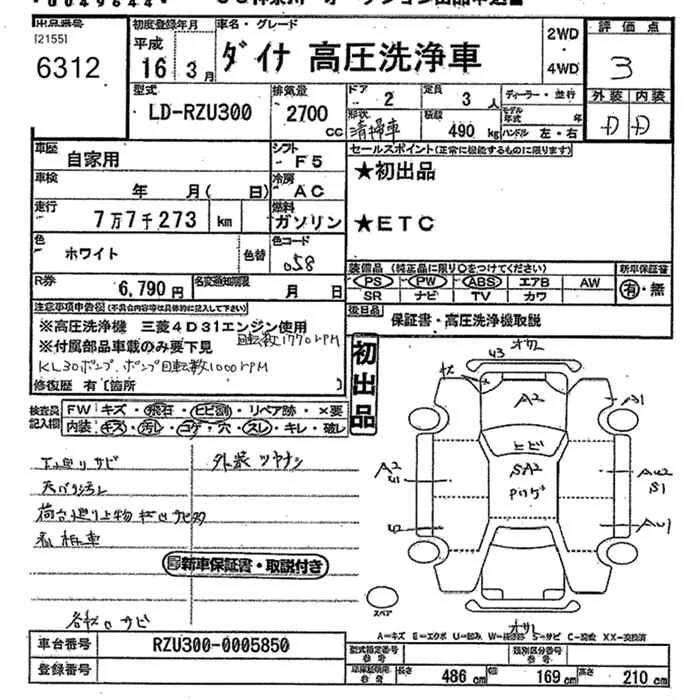 出品番号
[2155]
6312
初度登録年月
平成
16年 3月
車名・グレード
ダイナ 高圧洗浄車
2WD
・
4WD
評価点
3
外装 内装
D D
型式
LD-RZU300
排気量
2700
cc
ドア
2
定員
3 人
ディーラー・並行
モデル年式 年
形状
清掃車
積載
490 kg
ハンドル 左・右
車歴
自家用
シフト
F5
セールスポイント(正常に機能するものに限ります)
★初出品
★ETC
車検
年 月( 日)
冷房
AC
走行
7万7千273 km
燃料
ガソリン
色
ホワイト
色替
色コード
058
装備品(純正品に限り○をつけてください)
PS・PW・ABS・エアB AW
SR ナビ TV カワ
新車保証書
有・無
R券
6,790円
名変通知期限
月 日
後日品
保証書・高圧洗浄機取説
注意事項申告欄(不具合内容等は具体的に記入して下さい)
※高圧洗浄機 三菱4D31エンジン使用
回転数1770RPM
※付属部品車載のみ要下見
KL30ポンプ、ポンプ回転数1000RPM
修復歴 有〔箇所 〕
初出品
検査員記入欄
FW キズ・飛石・ヒビ割・リペア跡・×要
内装 キズ・汚レ・コゲ・穴・スレ・キレ・破レ
下廻りサビ
外装ツヤナシ
天バリ汚レ
看板車
新車保証書・取説付き
各部サビ
U3
A2
ヒビ
SA2
A2
U1
U2
S1
AU1
スペア
A=キズ E=エクボ U=凹み W=板金跡 S=サビ C=腐蝕 XX=交換済
車台番号
RZU300-0005850
登録番号
型式指定番号
類別区分番号
長さ
486 cm
幅
169 cm
高さ
210 cm